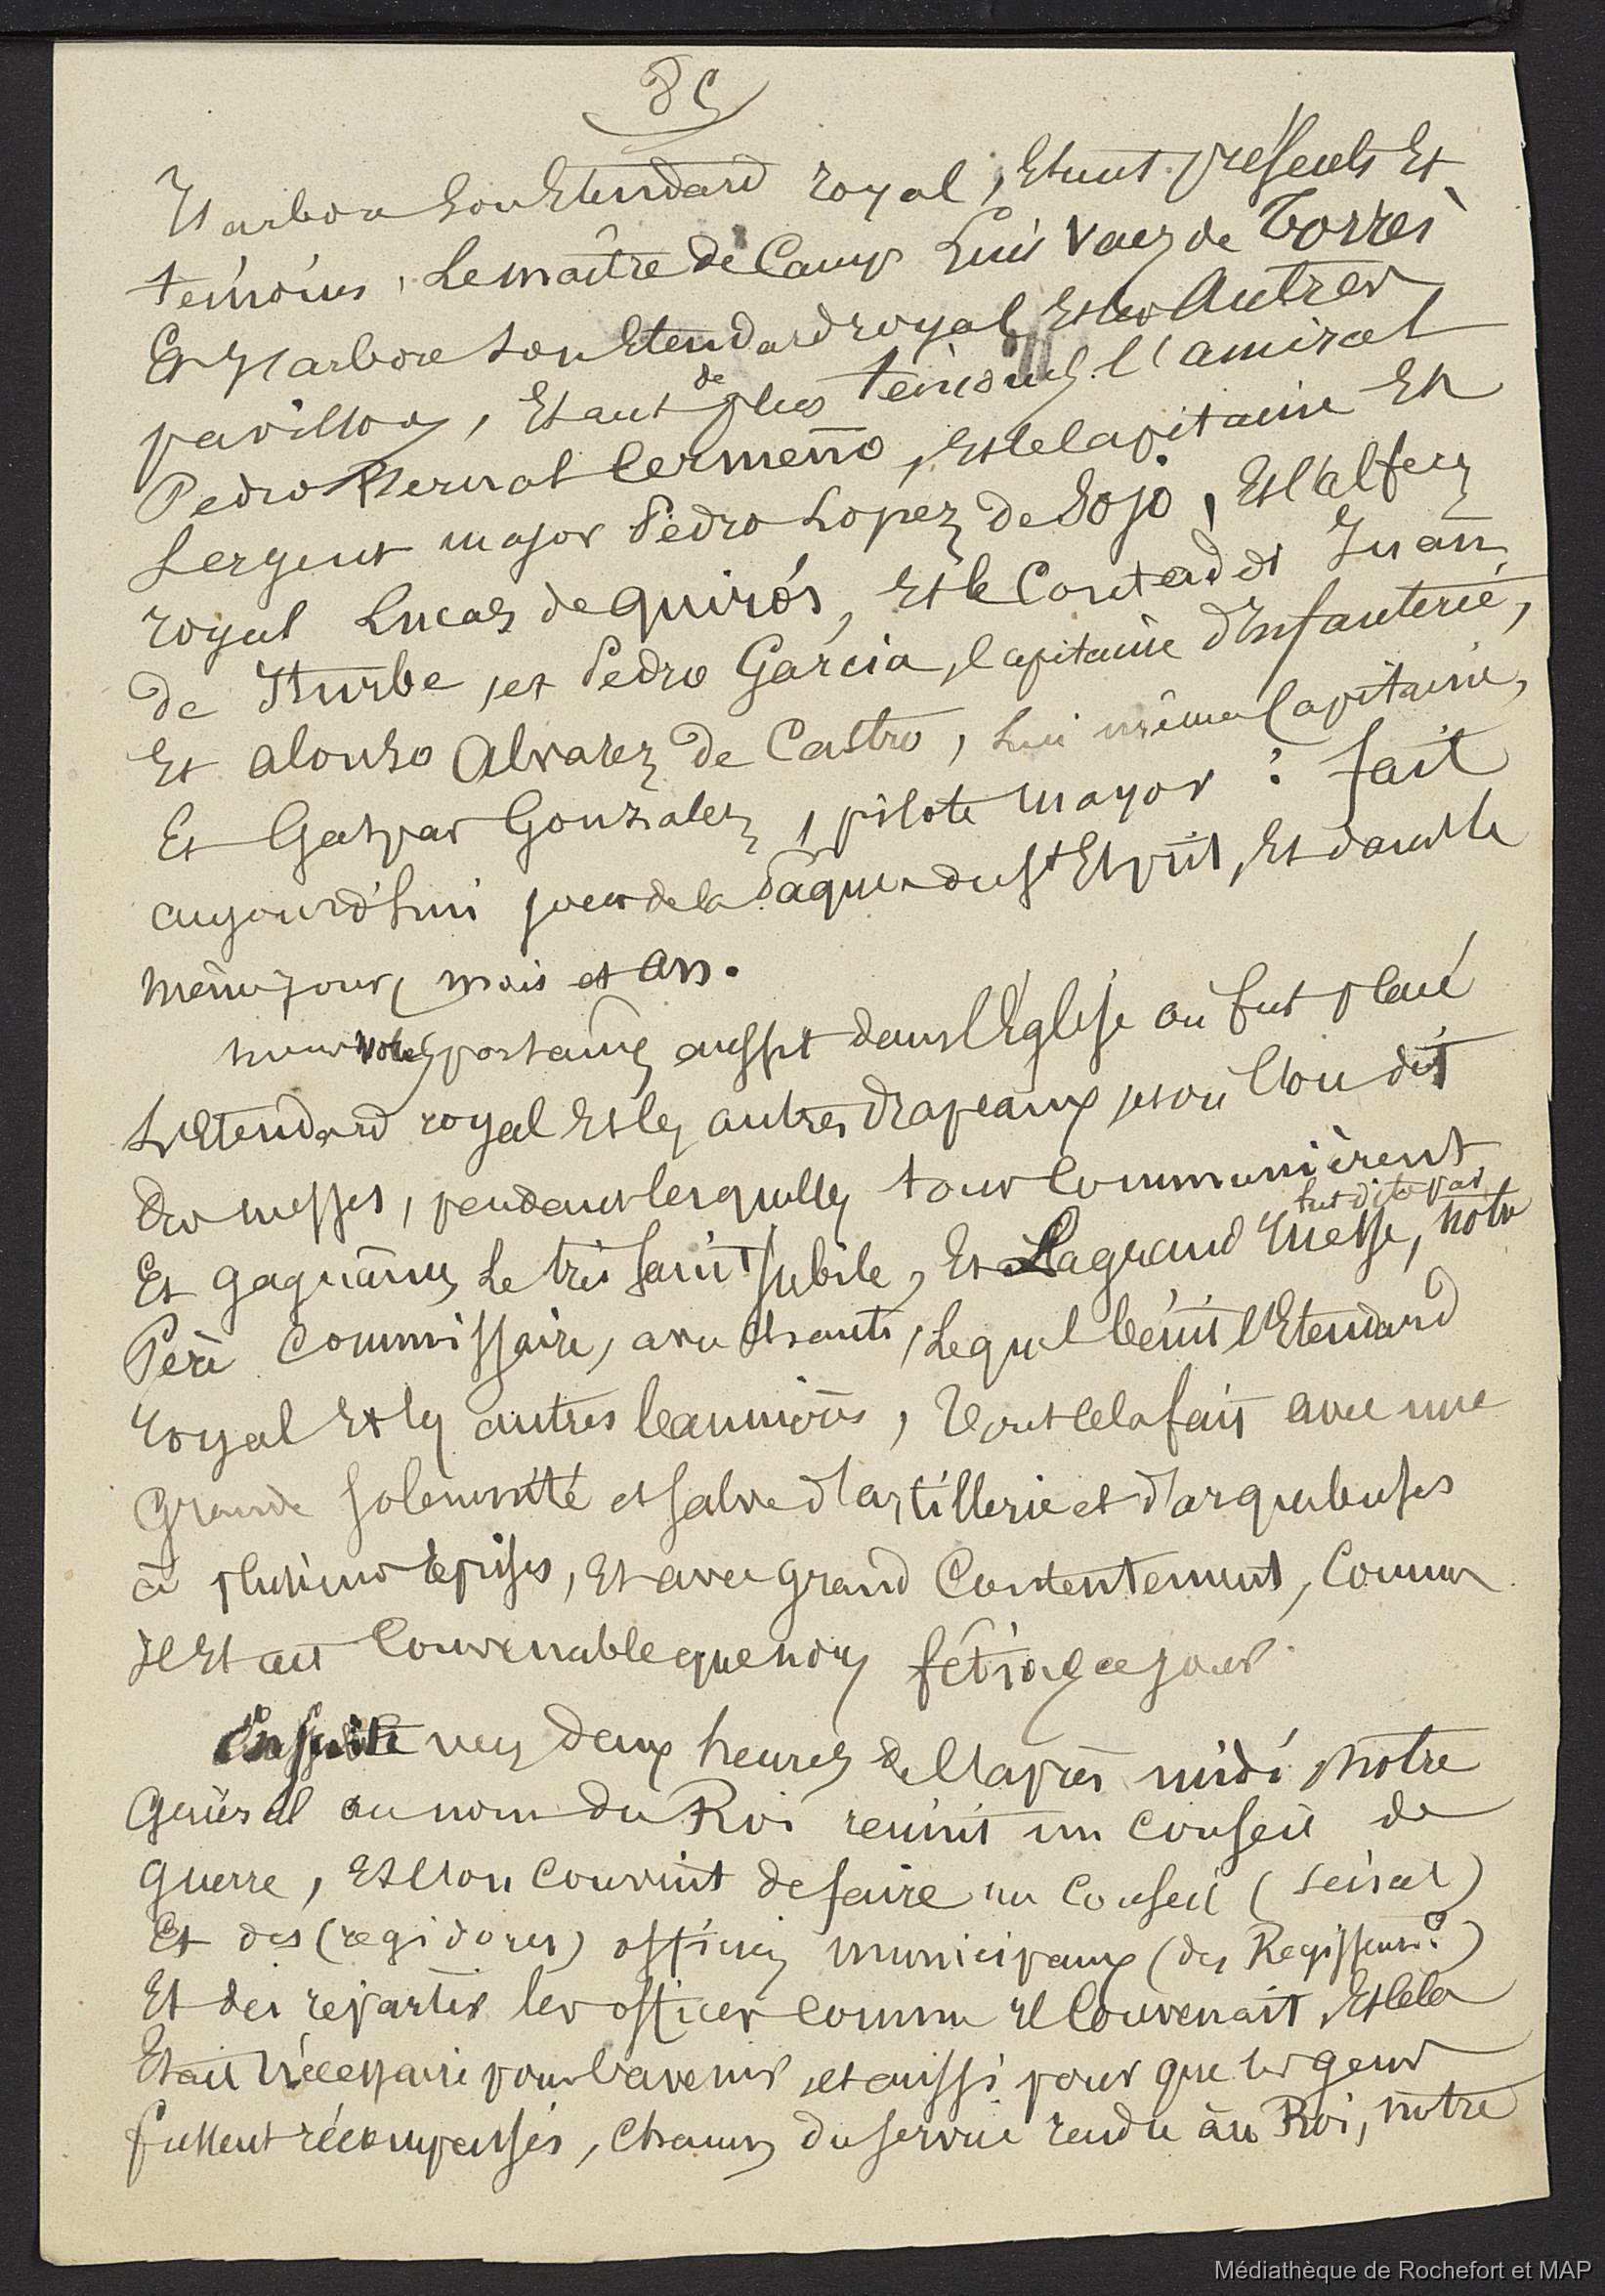 85
Il arbora son Etendard royal, Etant présents Et
témoins, Le maître de Camp Luis Vaez de Torres
Et Il arbore son Etendard royal Et les Autres
pavillons, Etant de plus témoins l'amiral
Pedro Bernal Cermeño, Et le Capitaine Et
Sergent major Pedro Lopez de Sojo, Et l'alferez
royal Lucas de quirós, Et le Contador Juan
de Iturbe, et Pedro Garcia, Capitaine d'Infanterie,
Et Alonso Alvarez de Castro, lui même Capitaine,
Et Gaspar Gonzalez, pilote mayor : fait
aujourd'hui jour de la Pâques du St Esprit, Et dans le
même jour, mois et an.
nous portâmes aussi dans l'Eglise où fut placé
L'Etendard royal Et les autres drapeaux, et où l'on dit
des messes, pendant lesquelles tous Communièrent
Et gagnâmes Le très Saint Jubilé, Et La grand Messe, fut dite par notre
Père Commissaire, avec chants, Lequel bénit l'Etendard
royal Et les autres bannières, Tout cela fait avec une
Grande solennité et salve d'artillerie et d'arquebuses
à plusieurs reprises, Et avec grand Contentement, Comme
il Etait Convenable que nous fêtions ce jour
Ensuite vers deux heures de l'après midi, Notre
Général au nom du Roi réunit un conseil de
guerre, Et l'on Convint de faire un Conseil (sénat)
Et des (regidores) officiers municipaux (des Régisseurs?)
Et de répartir les offices comme il Convenait, Et cela
Etait Nécessaire pour l'avenir, et aussi pour que les gens
fussent récompensés, chacun du service rendu au Roi, notre
Médiathèque de Rochefort et MAP